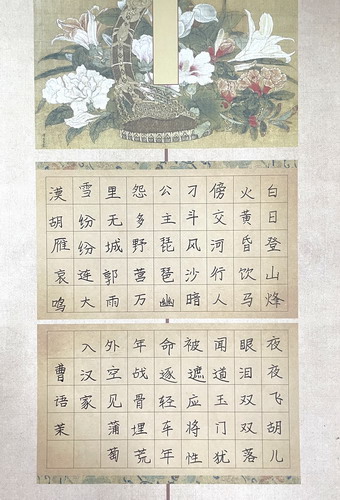 白日登山烽
火黄昏饮马
傍交河行人
刁斗风沙暗
公主琵琶幽
怨多野营万
里无城郭雨
雪纷纷连大
漠胡雁哀鸣
夜夜飞胡儿
眼泪双双落
闻道玉门犹
被遮应将性
命逐轻车年
年战骨埋荒
外空见蒲萄
入汉家
曹语茉